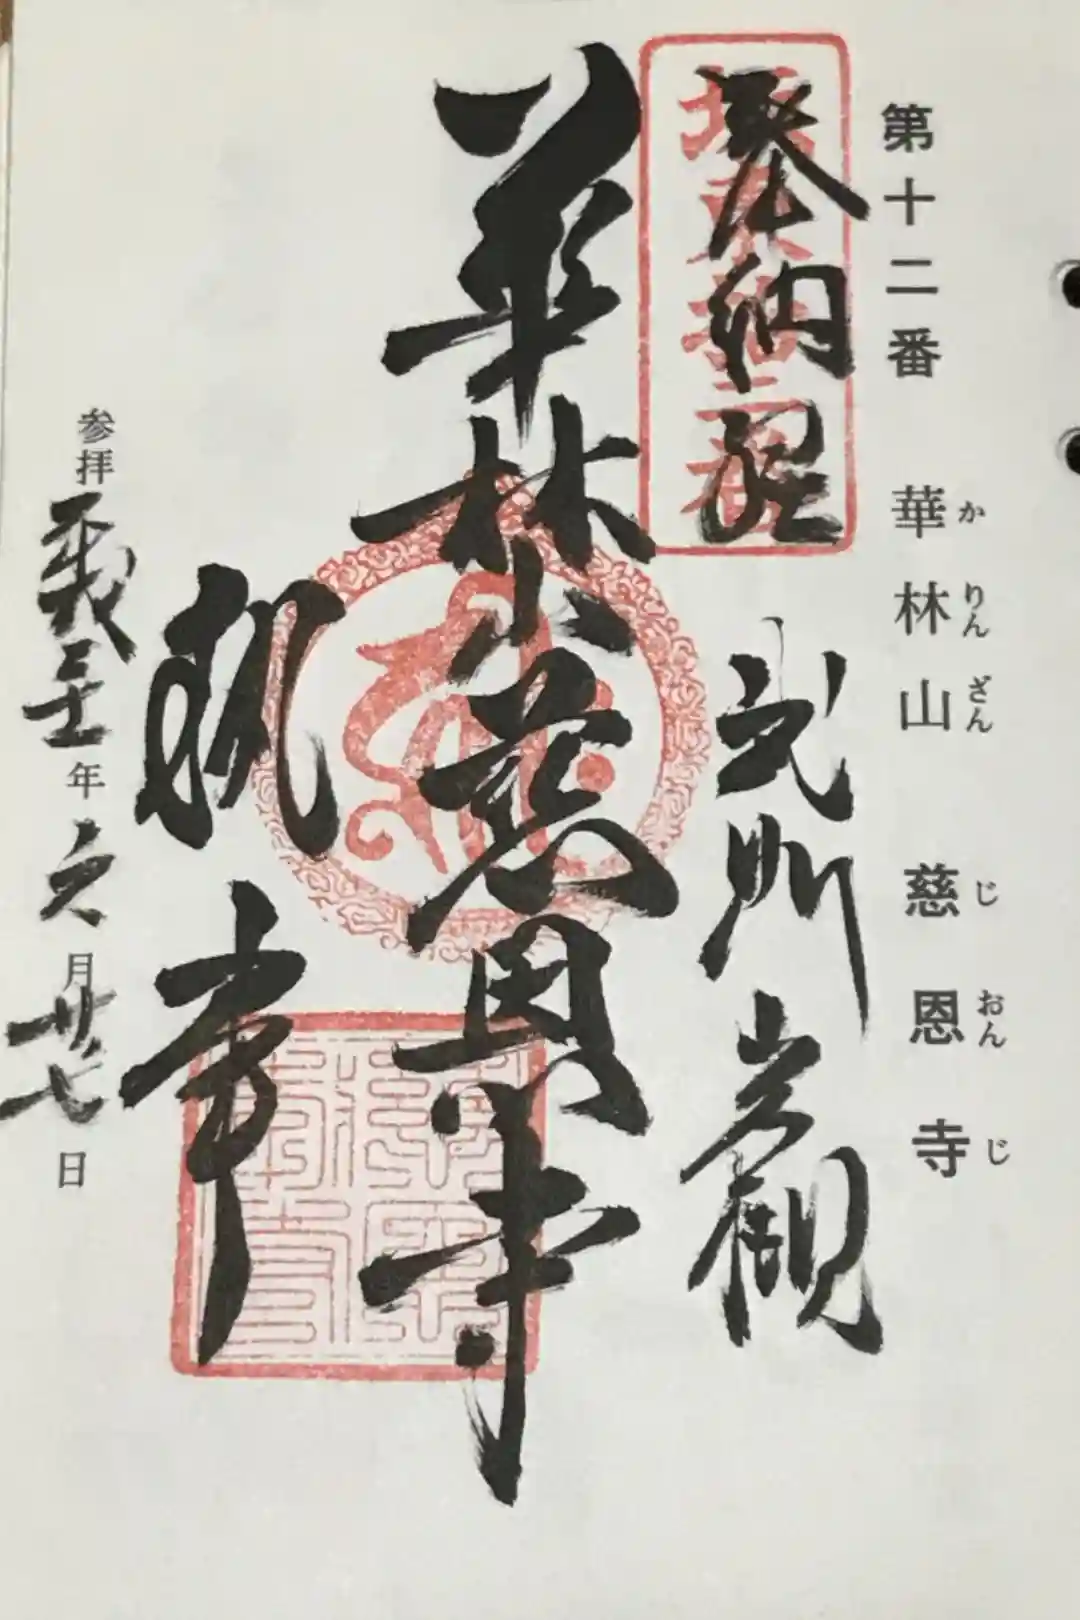 第十二番 華林山 慈恩寺
かりんざん じおんじ
奉納経
坂東拾二番
武州岩
華林山慈恩寺
執事
参拝 平成 年六月廿七日